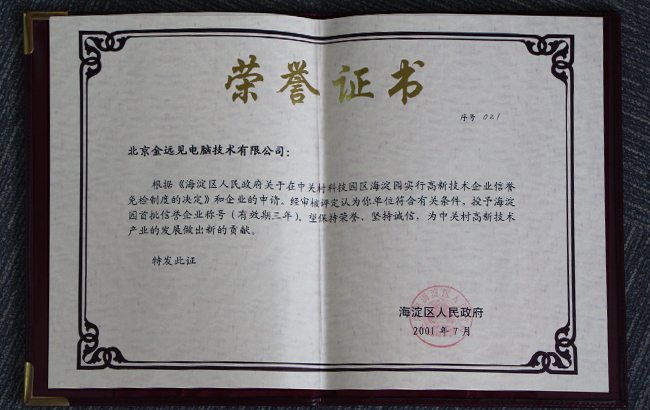 荣誉证书
序号 021
北京金远见电脑技术有限公司：
根据《海淀区人民政府关于在中关村科技园区海淀园实行高新技术企业信誉
免检制度的决定》和企业的申请。经审核评定认为你单位符合有关条件，授予海淀
园首批信誉企业称号（有效期三年）。望保持荣誉、坚持诚信，为中关村高新技术
产业的发展做出新的贡献。
特发此证
海淀区人民政府
2001 年 7 月